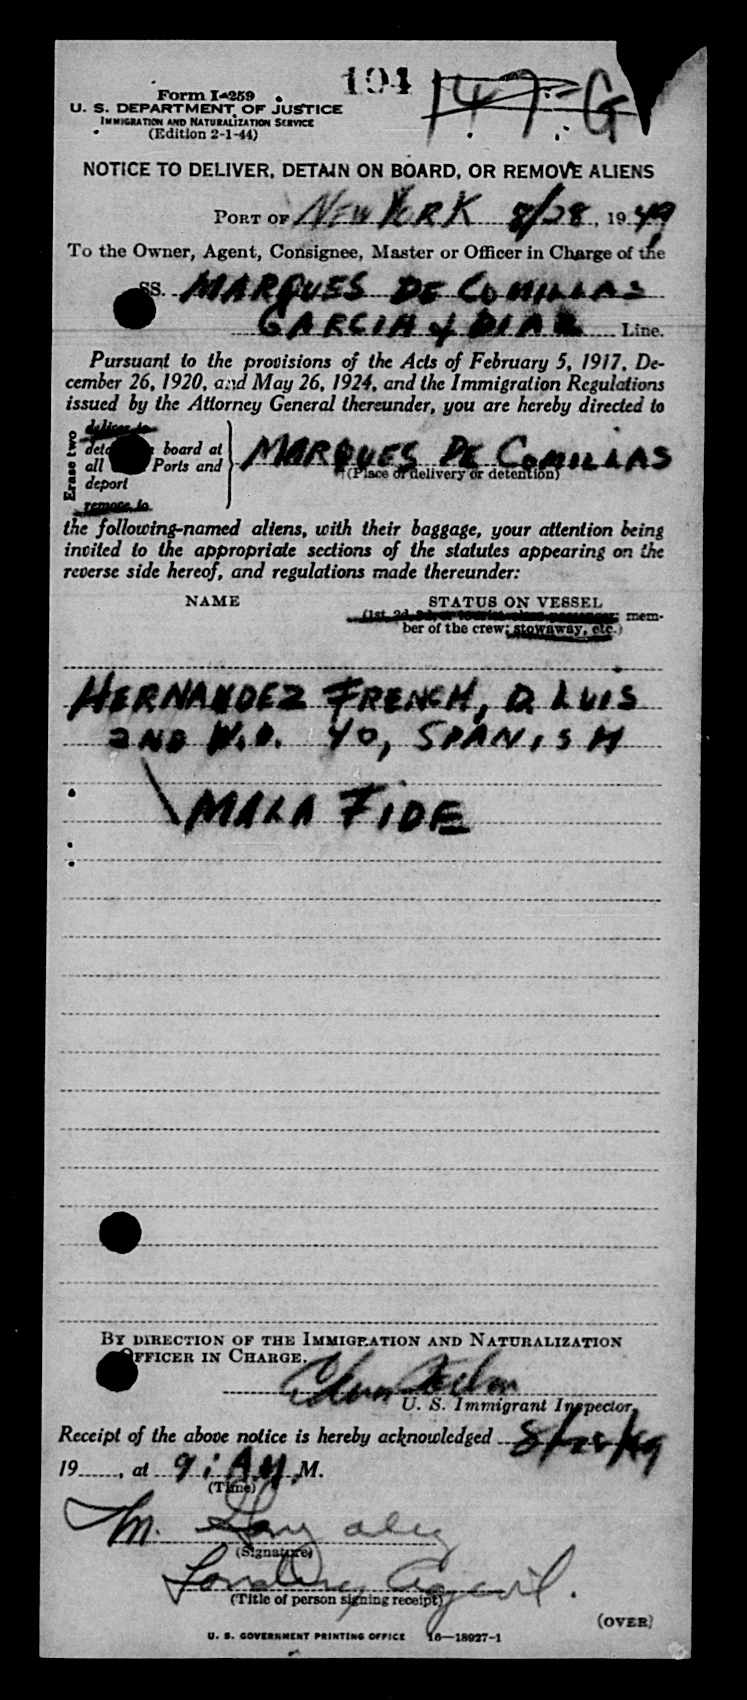 194 147-G
Form I-259
U. S. DEPARTMENT OF JUSTICE
IMMIGRATION AND NATURALIZATION SERVICE
(Edition 2-1-44)
NOTICE TO DELIVER, DETAIN ON BOARD, OR REMOVE ALIENS
PORT OF NEW YORK 8/28, 1949
To the Owner, Agent, Consignee, Master or Officer in Charge of the
SS. MARQUES DE COMILLAS
GARCIA & DIAZ Line.
Pursuant to the provisions of the Acts of February 5, 1917, De-
cember 26, 1920, and May 26, 1924, and the Immigration Regulations
issued by the Attorney General thereunder, you are hereby directed to
Erase two
deliver to
board at
all Ports and
deport
remove to
MARQUES DE COMILLAS
(Place of delivery or detention)
the following-named aliens, with their baggage, your attention being
invited to the appropriate sections of the statutes appearing on the
reverse side hereof, and regulations made thereunder:
NAME STATUS ON VESSEL
mem-
ber of the crew; stowaway, etc.)
HERNANDEZ FRENCH, D. LUIS
2ND W.O. 40, SPANISH
MALA FIDE
BY DIRECTION OF THE IMMIGRATION AND NATURALIZATION
OFFICER IN CHARGE.
U. S. Immigrant Inspector.
Receipt of the above notice is hereby acknowledged 8/28/49
19 , at 9: A.M. M.
(Time)
M.
(Signature)
(Title of person signing receipt)
(OVER)
U. S. GOVERNMENT PRINTING OFFICE 16—18927-1